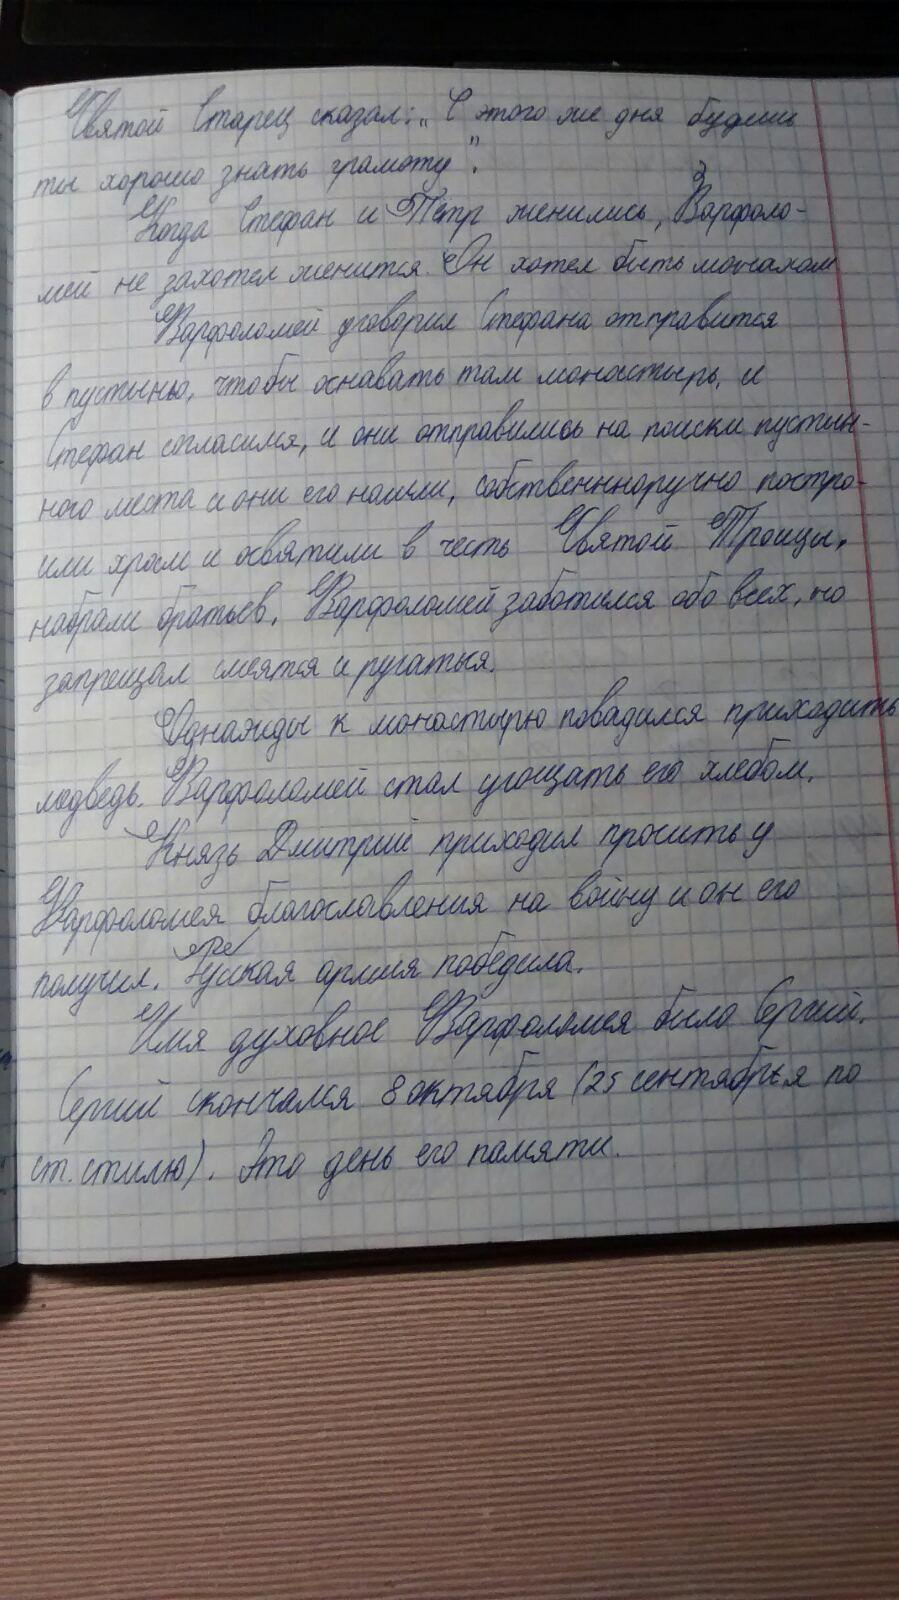 Святой Старец сказал: „С этого же дня будешь
ты хорошо знать грамоту".
Когда Стефан и Петр женились, Варфоло-
мей не захотел женится. Он хотел быть монахом
Варфоломей уговорил Стефана отправится
в пустыню, чтобы оснавать там монастырь, и
Стефан согласился, и они отправились на поиски пустын-
ного места и они его нашли, собственнноручно постро-
или храм и освятили в честь Святой Троицы,
набрали братьев. Варфоломей заботился обо всех, но
запрещал смеятся и ругаться.
Однажды к монастырю повадился приходить
медведь. Варфоломей стал угощать его хлебом.
Князь Дмитрий приходил просить у
Варфоломея благославления на войну и он его
получил. армия победила.
Имя духовное Варфоломея было Сергий.
Сергий скончался 8 октября (25 сентября по
ст. стилю). Это день его памяти.